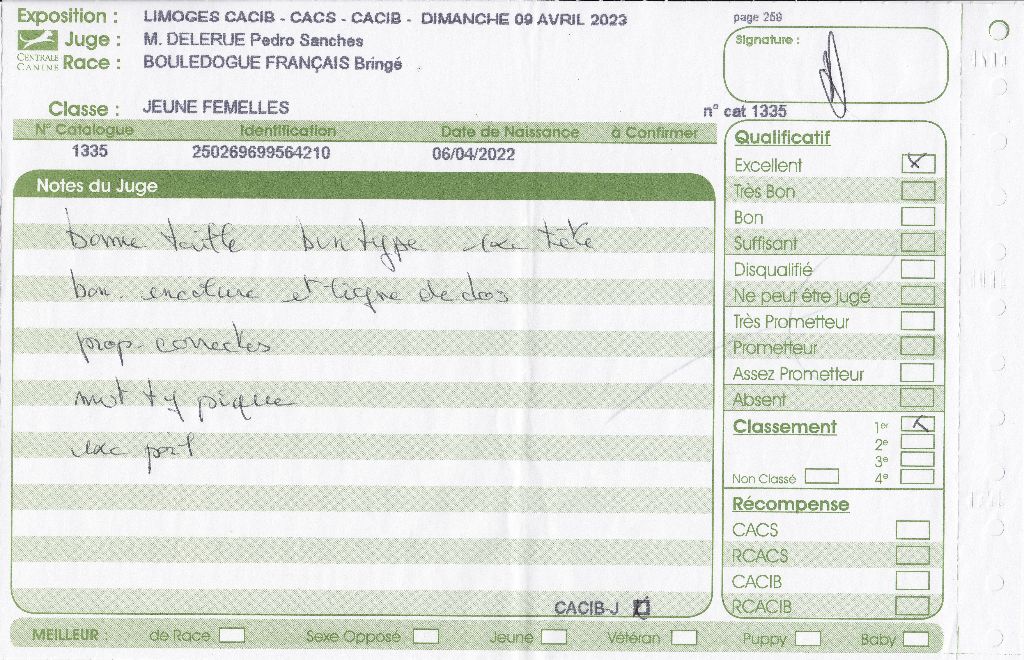 Exposition : LIMOGES CACIB - CACS - CACIB - DIMANCHE 09 AVRIL 2023
page 258
Juge : M. DELERUE Pedro Sanches
Signature :
CENTRALE CANINE
Race : BOULEDOGUE FRANÇAIS Bringé
Classe : JEUNE FEMELLES
n° cat 1335
N° Catalogue Identification Date de Naissance à Confirmer
1335 250269699564210 06/04/2022
Notes du Juge
bonne taille bon type exc tête
bon encolure et ligne de dos
prop. correctes
mvt typique
exc poil
CACIB-J
Qualificatif
Excellent
Très Bon
Bon
Suffisant
Disqualifié
Ne peut être jugé
Très Prometteur
Prometteur
Assez Prometteur
Absent
Classement 1er
2e
3e
Non Classé 4e
Récompense
CACS
RCACS
CACIB
RCACIB
MEILLEUR : de Race Sexe Opposé Jeune Vétéran Puppy Baby